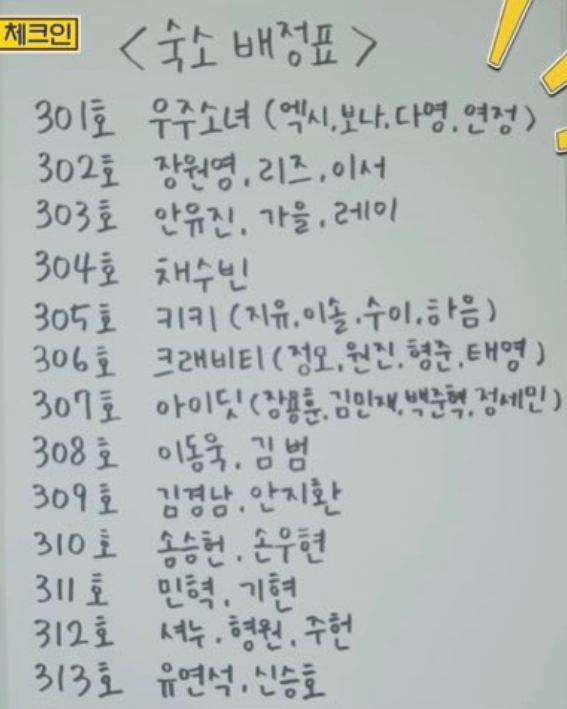 체크인
<숙소 배정표>
301호 우주소녀 (엑시.보나.다영.연정)
302호 장원영.리즈.이서
303호 안유진. 가을. 레이
304호 채수빈
305호 키키 (지유.이솔.수이.하음)
306호 크래비티 (정모.원진.형준.태영)
307호 아이딧 (장용훈.김민재.백준혁.정세민)
308호 이동욱. 김범
309호 김경남. 안지환
310호 송승헌. 손우현
311호 민혁. 기현
312호 셔누. 형원. 주헌
313호 유연석.신승호